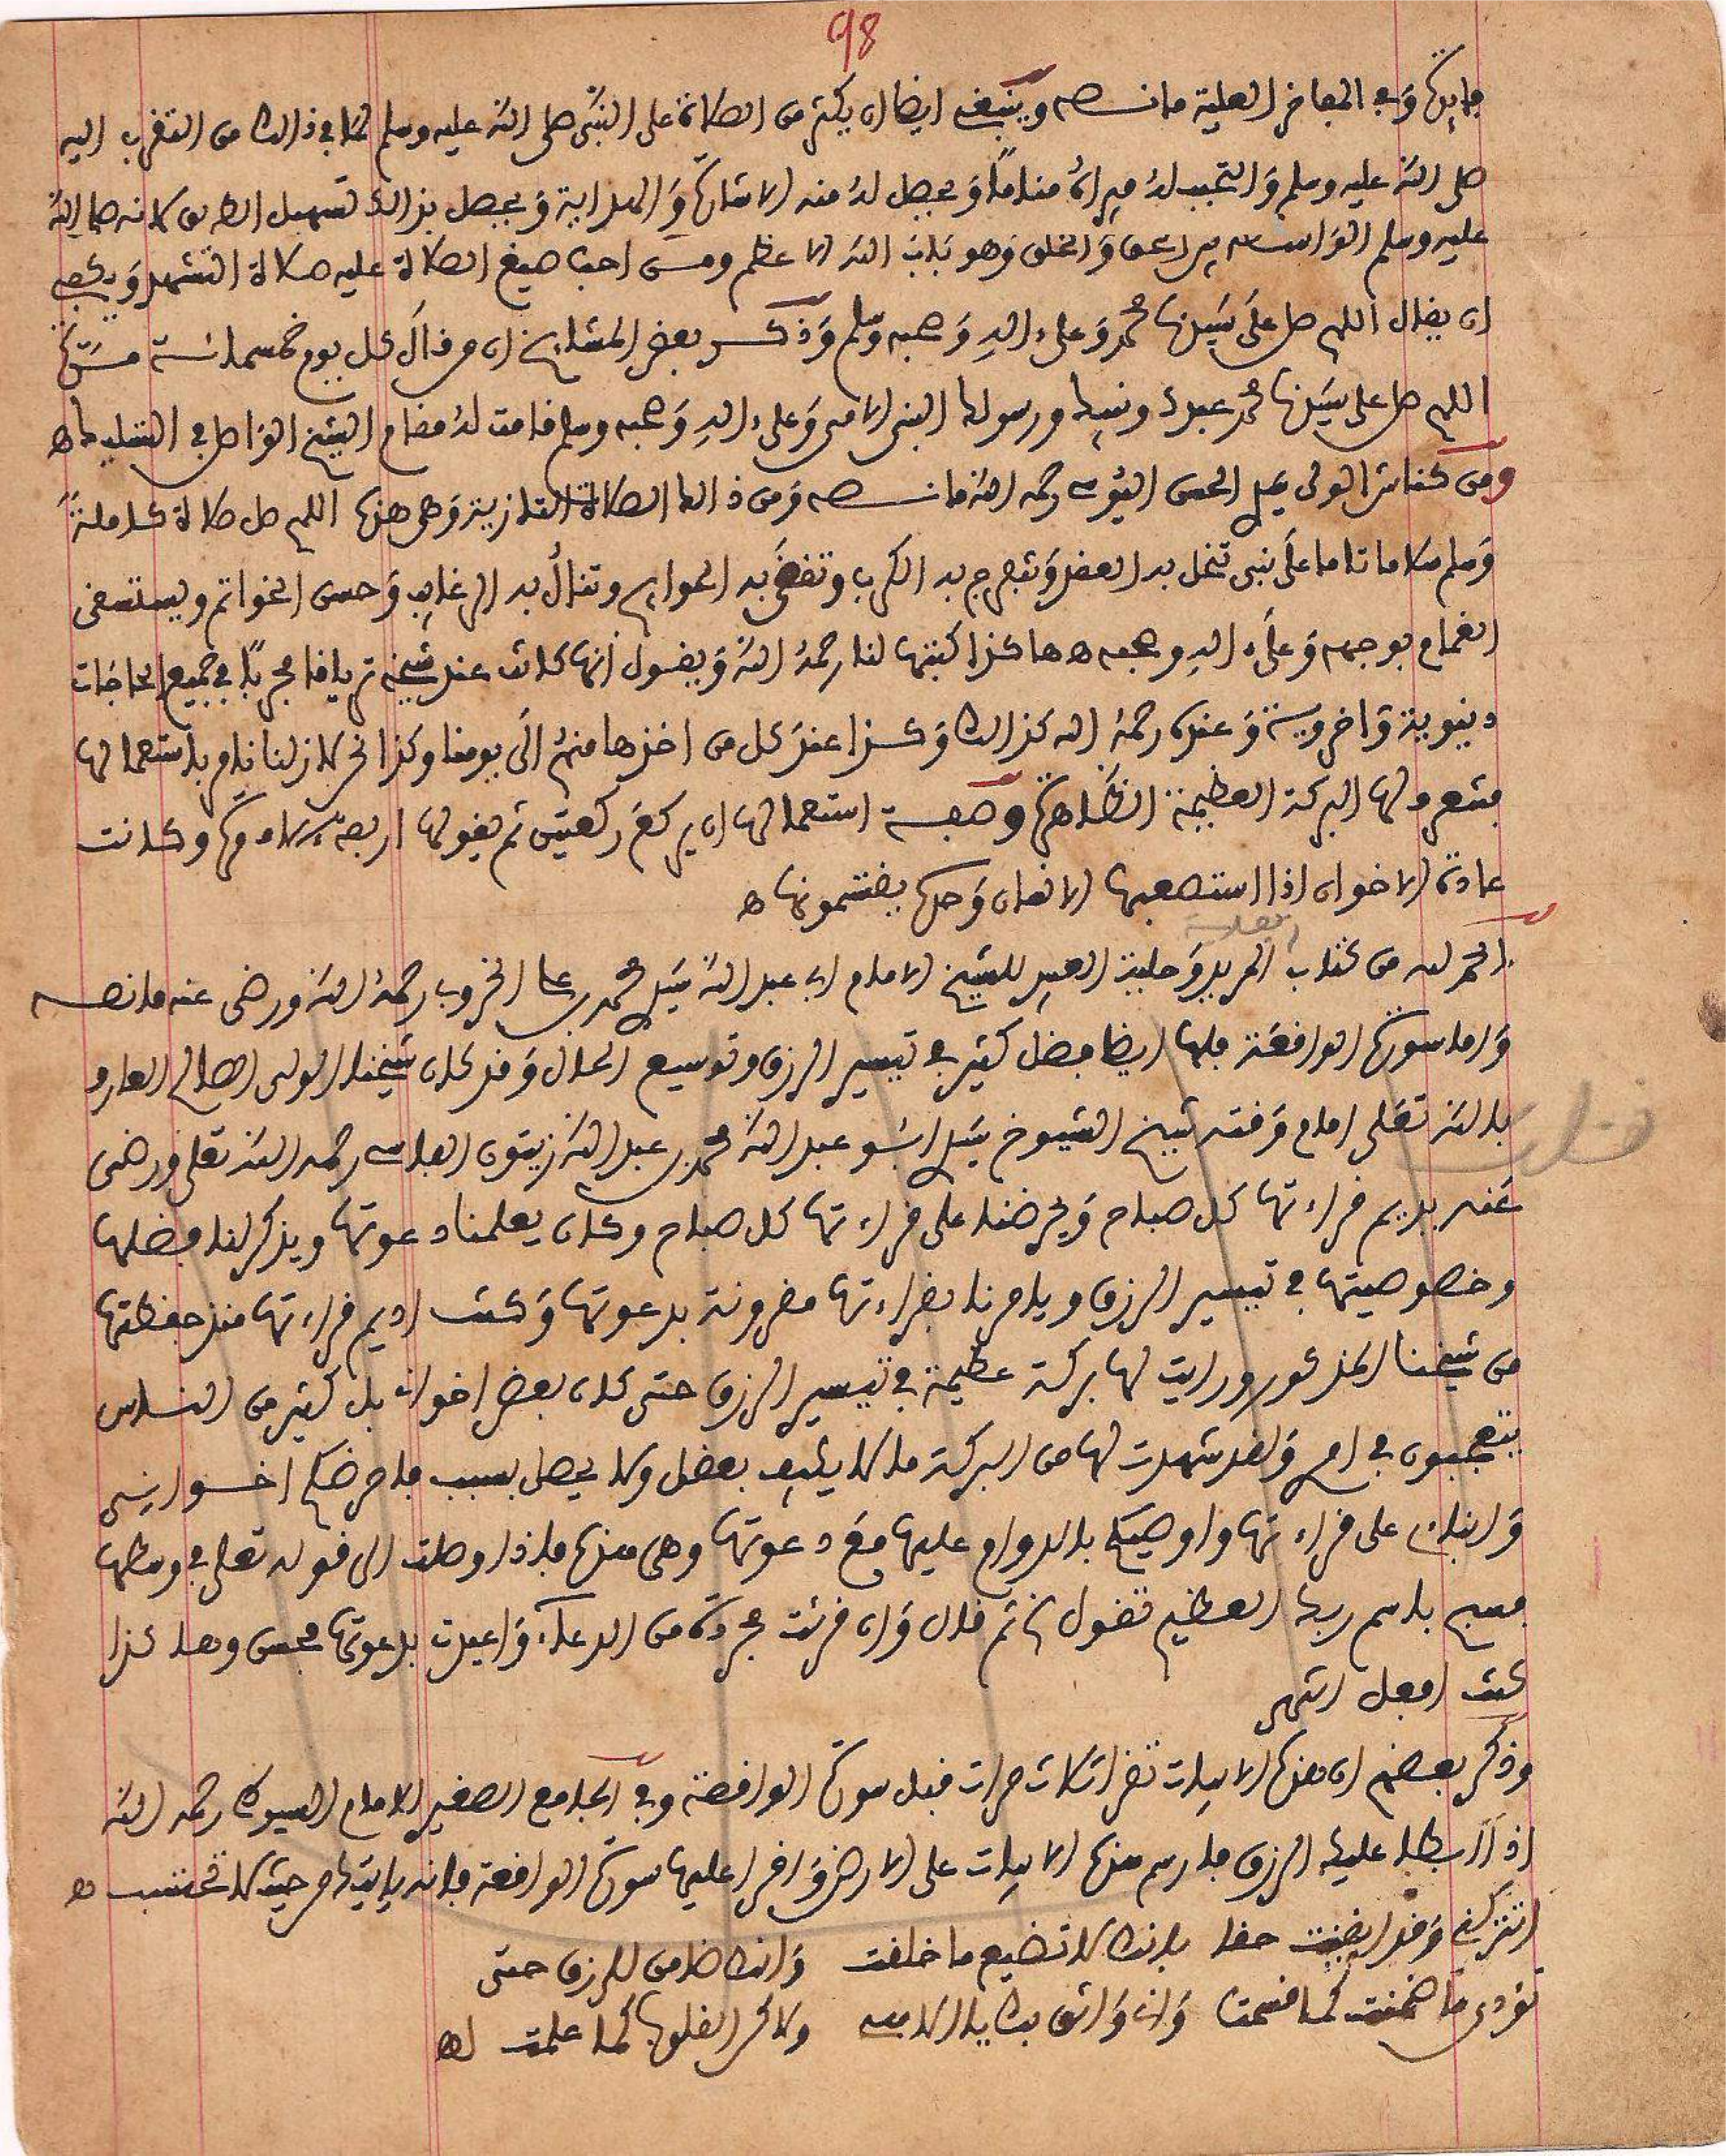 98
فايدة وفي المفاخر العلية ما نصه وينبغي ايضا ان يكثر من الصلاة على النبي صلى الله عليه وسلم لما في ذالك من التقرب اليه
صلى الله عليه وسلم والتحبب له فيراه مناما ويحصل له منه الاشارة والهداية ويحصل بذالك تسهيل الطريق لانه صلى الله
عليه وسلم الواسطة بين الحق والخلق وهو باب الله الاعظم ومن احب صيغ الصلاة عليه صلاة التشهد ويكفي
ان يقال اللهم صل على سيدنا محمد وعلى ءاله وصحبه وسلم وذكر بعض المشايخ ان من قال كل يوم خمسمائة مرة
اللهم صل على سيدنا محمد عبدك ونبيك ورسولك النبي الامي وعلى ءاله وصحبه وسلم قامت له مقام الشيخ الواصل في التسليك اه
ومن كناش الولي سيدي الحسن اليوسي رحمه الله ما نصه ومن ذالك الصلاة التازية وهي هذه اللهم صل صلاة كاملة
وسلم سلاما تاما على نبي تنحل به العقد وتنفرج به الكرب وتقضى به الحوايج وتنال به الرغايب وحسن الخواتم ويستسقى
الغمام بوجهه وعلى ءاله وصحبه اه هاكذا كتبتها لنا رحمه الله ويقول انها كانت عند شيخه ترياقا مجربا في جميع الحاجات
دنيوية واخروية وعنده رحمه الله كذالك وكذا عند كل من اخذها منه الى يومنا وكذا نحن لازلنا نامر باستعمالها
فتعرف لها البركة العظيمة الظاهرة وصفة استعمالها ان يركع ركعتين ثم يقولها اربعة ءالاف مرة وكانت
عادة الاخوان اذا استصعبها الانسان وحده يقتسمونها اه
الحمد لله من كتاب كفاية المريد وحلية العبيد للشيخ الامام ابي عبد الله سيدي محمد بن علي الخروبي رحمه الله ورضي عنه ما نصه
واما سورة الواقعة فلها ايضا فضل كثير في تيسير الرزق وتوسيع الحلال وقد كان شيخنا الولي الصالح العارف
بالله تعلى امام وقته شيخ الشيوخ سيدي ابو عبد الله محمد بن عبد الله زيتون الفاسي رحمه الله تعلى ورضي
عنه يديم قراءتها كل صباح ويحرضنا على قراءتها كل صباح وكان يعلمنا دعوتها ويذكر لنا فضلها
وخصوصيتها في تيسير الرزق ويامرنا بقراءتها مقرونة بدعوتها وكنت اديم قراءتها منذ حفظتها
من شيخنا المذكور ورايت لها بركة عظيمة في تيسير الرزق حتى كان بعض اخوان بل كثير من الناس
يتعجبون في امري ولقد شهدت لها من البركة ما لا يكيف بعقل ولا يحصل بسبب فاحرضكم اخواني
وابنائي على قراءتها واوصيكم بالدوام عليها مع دعوتها وهي هذه فاذا وصلت الى قوله تعلى في وسطها
فسبح باسم ربك العظيم تقول ثم قال وان قرئت مجردة من الدعاء واعيدت بدعوتها فحسن وهاكذا
كنت افعل انتهى
وذكر بعضهم ان هذه الابيات تقرا ثلاث مرات قبل سورة الواقعة وفي الجامع الصغير للامام السيوطي رحمه الله
اذا ابطا عليك الرزق فارسم هذه الابيات على الارض واقرا عليها سورة الواقعة فانه ياتيك من حيث لا تحتسب اه
اتتركني وقد ايقنت حقا بانك لا تضيع ما خلقت وانك ضامن للرزق حتى
تؤدي ما ضمنت كما قسمتا واني واثق بك يا الاهي ولاكن القلوب كما علمت اه